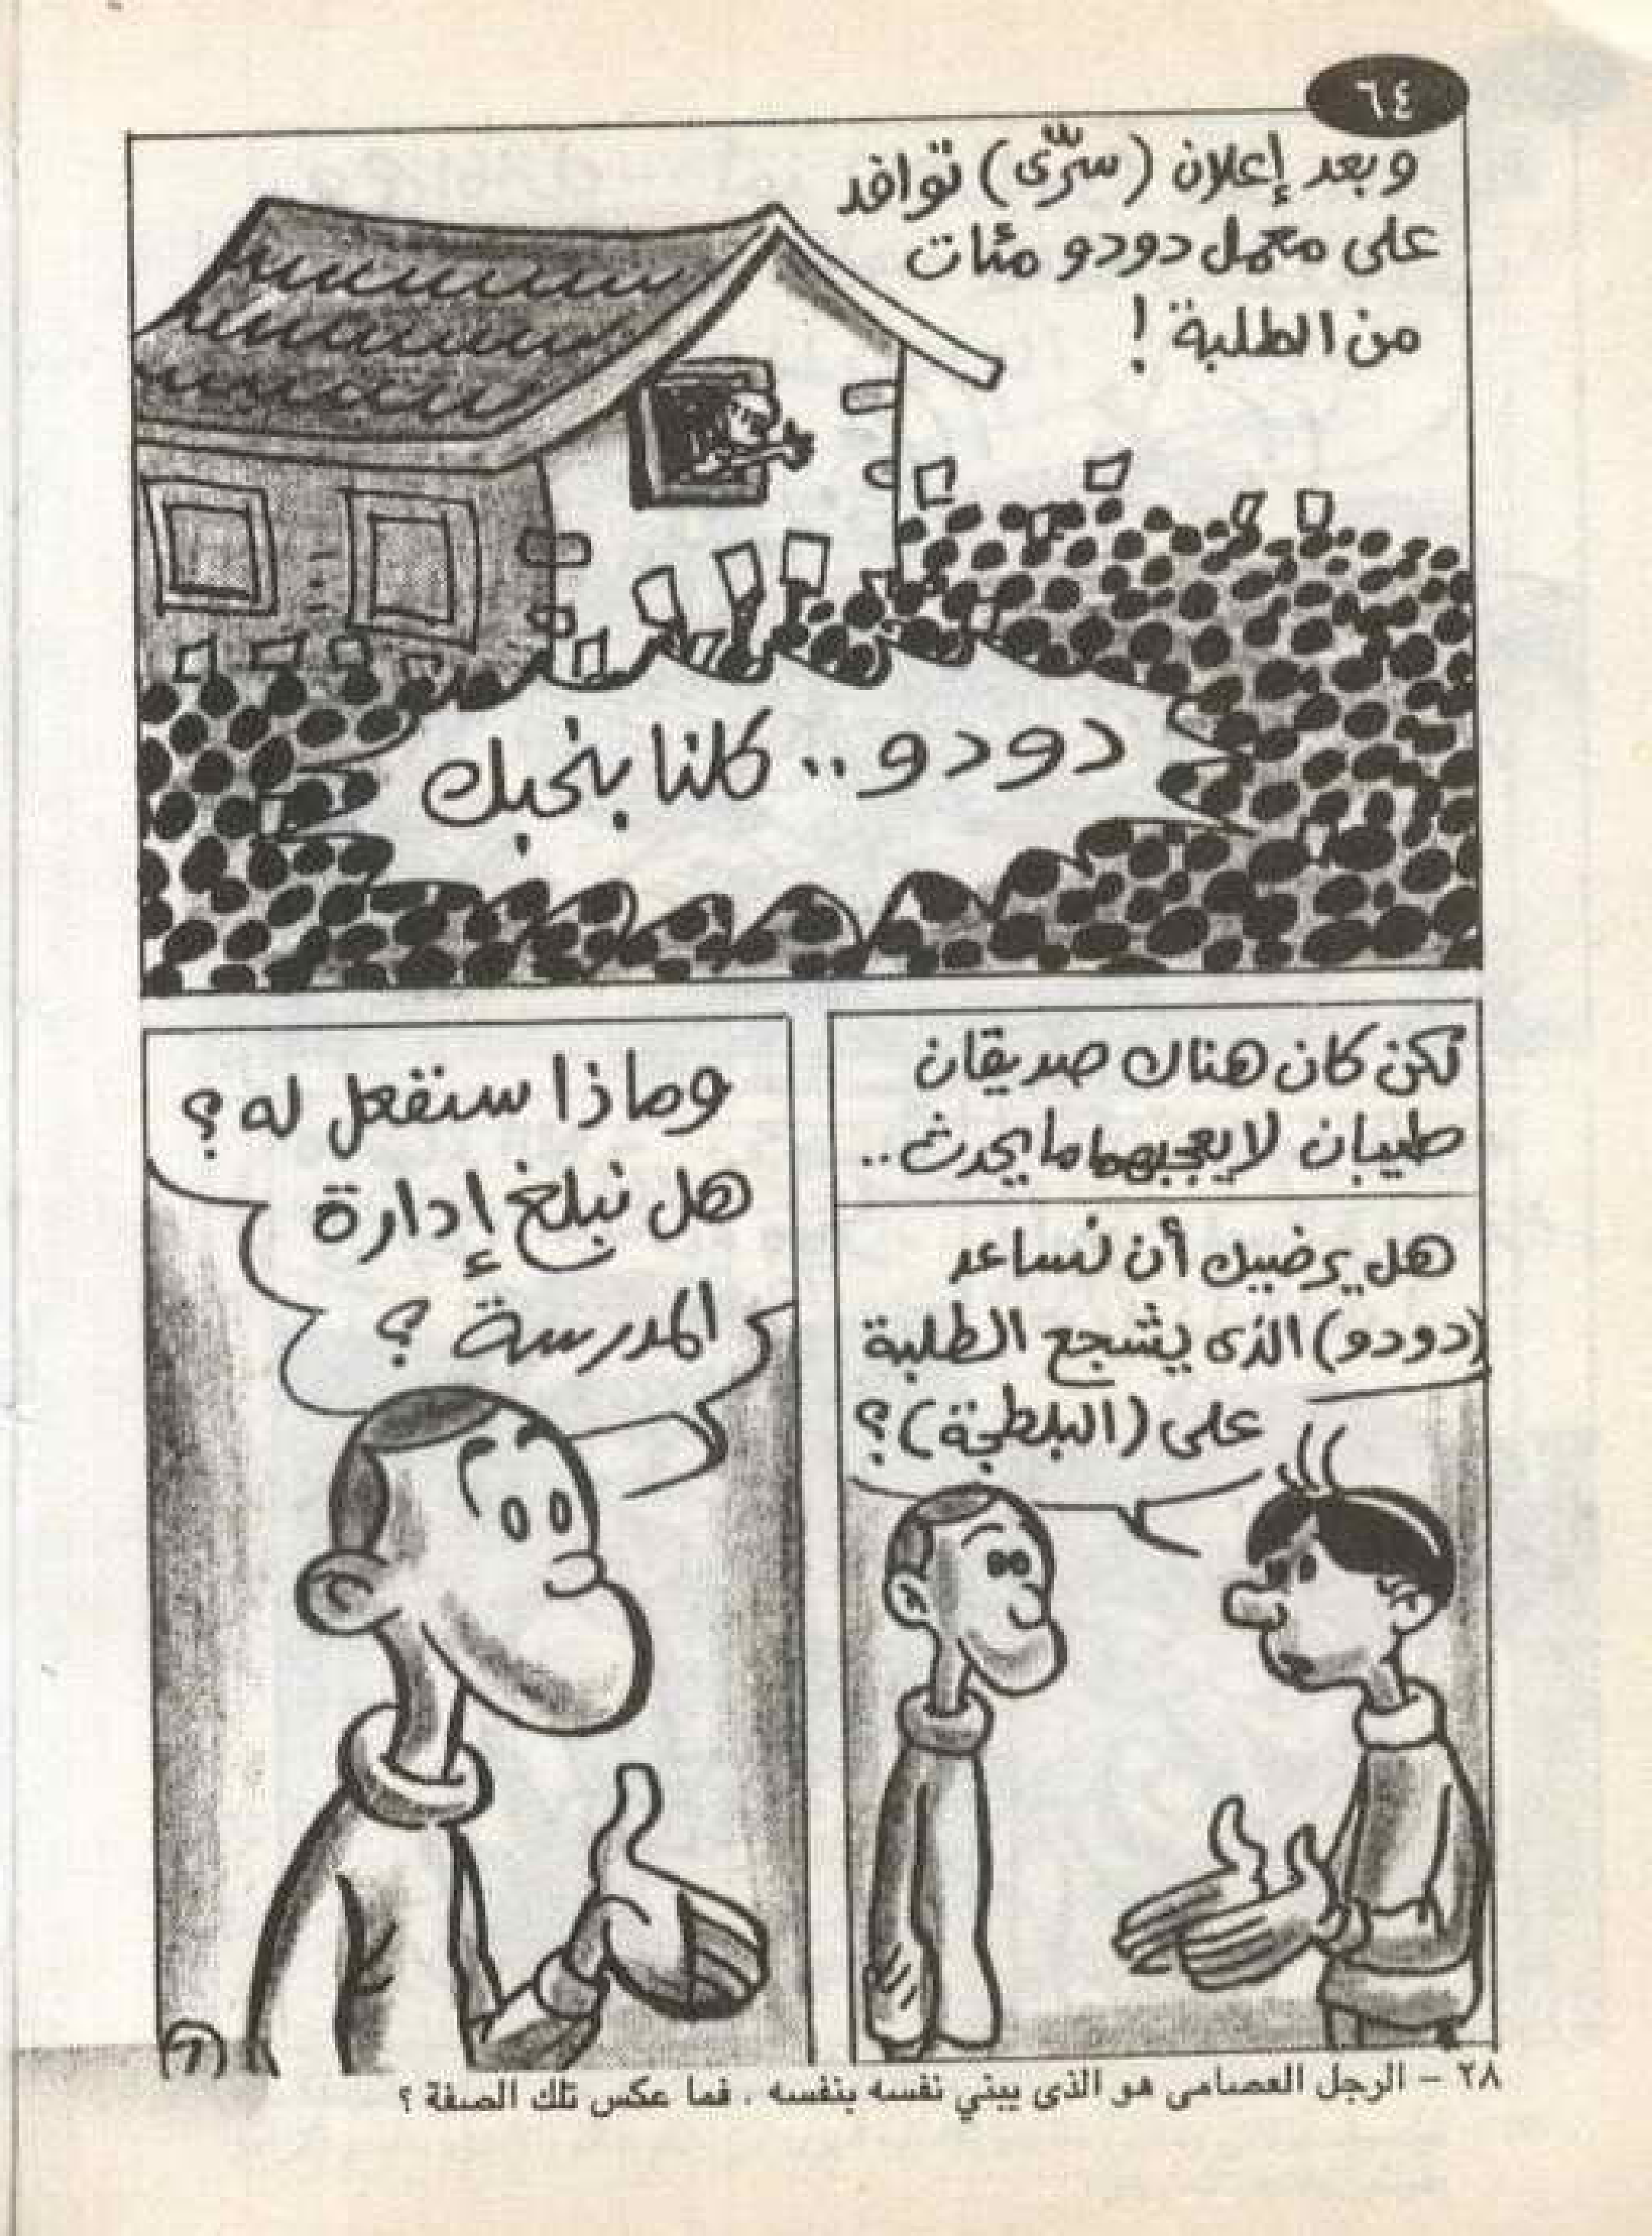 ٦٤
وبعد إعلان (سرّى) توافد
على معمل دودو مئات
من الطلبة !
دودو.. كلنا بنحبك
لكن كان هناك صديقان
طيبان لا يعجبهما ما يحدث..
هل يرضيك أن نساعد
(دودو) الذى يشجع الطلبة
على (البلطجة) ؟
وماذا سنفعل له ؟
هل نبلغ إدارة
المدرسة ؟
٢٨ – الرجل العصامى هو الذى يبني نفسه بنفسه . فما عكس تلك الصفة ؟